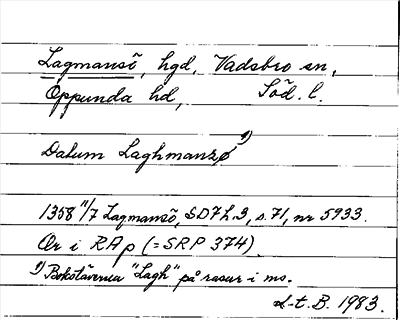 Lagmansö, hgd, Vadsbro sn,
Oppunda hd, Söd. l.
Datum Laghmanzø 1)
1358 11/7 Lagmansö, SD7h.3, s. 71, nr 5933.
Or i RAp (= SRP 374)
1) Bokstäverna "Lagh" på rasur i ms.
L-t. B. 1983.